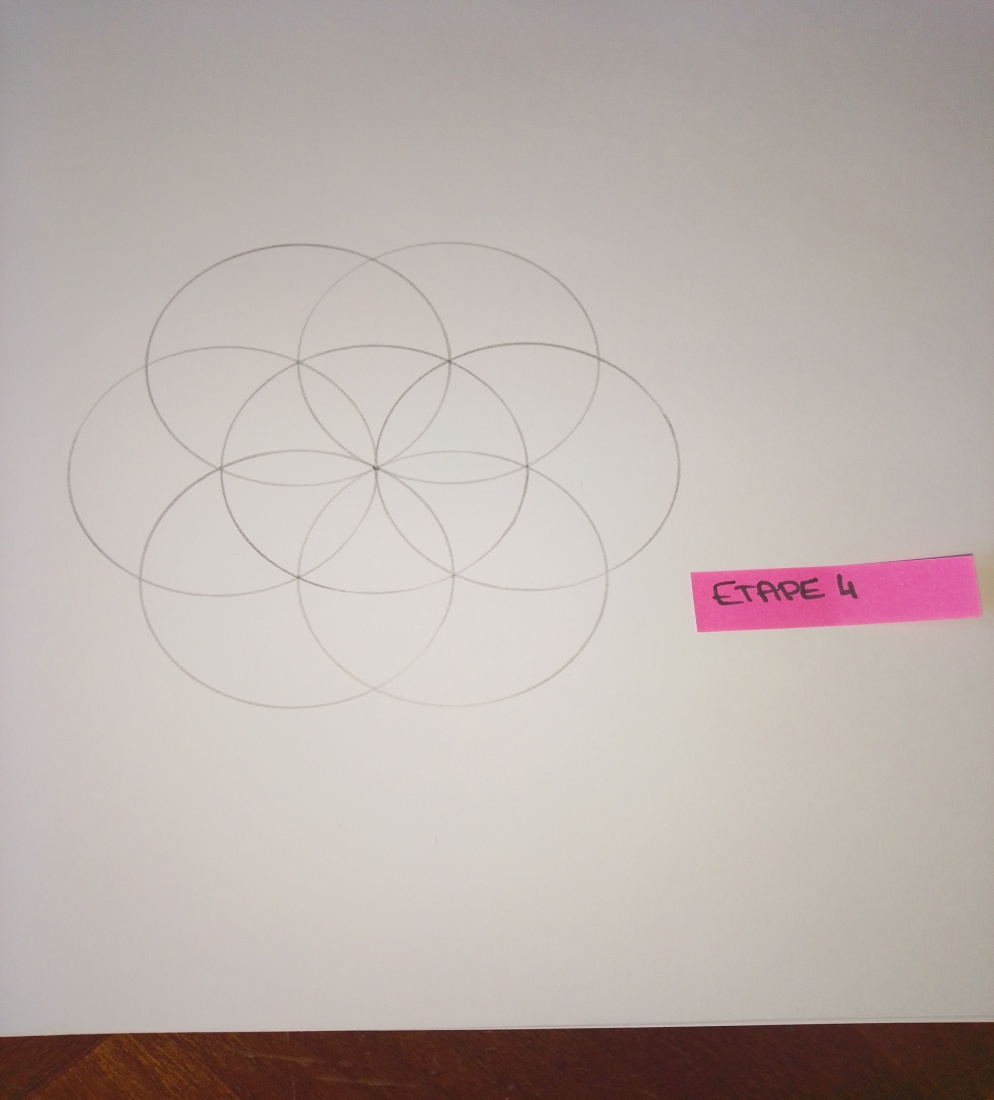 ETAPE 4